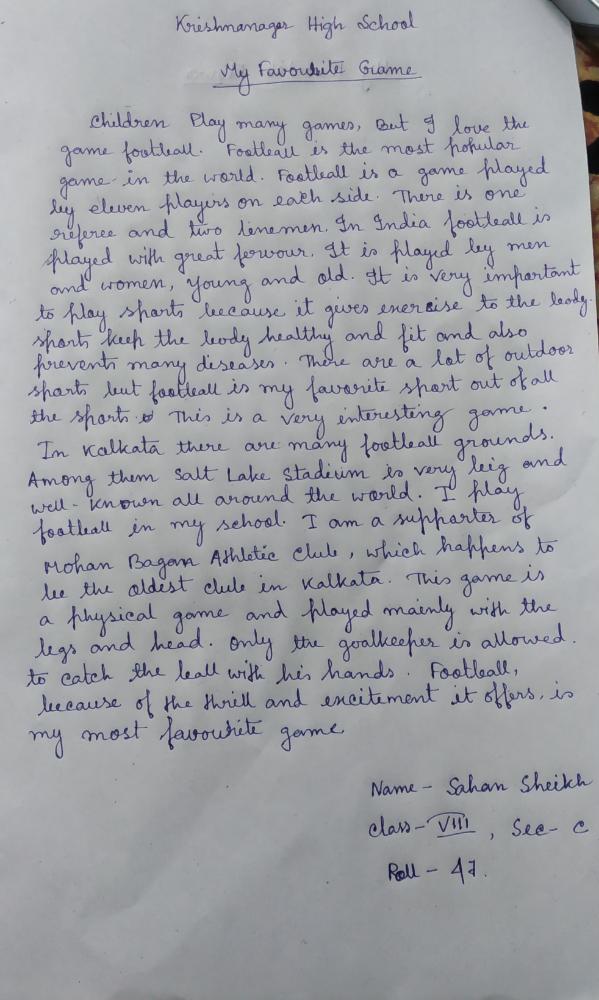 Krishnanagar High School
My Favourite Game
Children Play many games, But I love the
game football. Football is the most popular
game in the world. Football is a game played
by eleven players on each side. There is one
referee and two linemen. In India football is
played with great fervour. It is played by men
and women, young and old. It is very important
to play sports because it gives exercise to the body.
sports keep the body healthy and fit and also
prevents many diseases. There are a lot of outdoor
sports but football is my favorite sport out of all
the sports. This is a very interesting game.
In Kalkata there are many football grounds.
Among them Salt Lake Stadium is very big and
well-known all around the world. I play
football in my school. I am a supporter of
Mohan Bagan Athletic Club, which happens to
be the oldest club in Kalkata. This game is
a physical game and played mainly with the
legs and head. Only the goalkeeper is allowed.
to catch the ball with his hands. Football,
because of the thrill and excitement it offers, is
my most favourite game
Name - Sahan Sheikh
Class - VIII, Sec - C
Roll - 47.